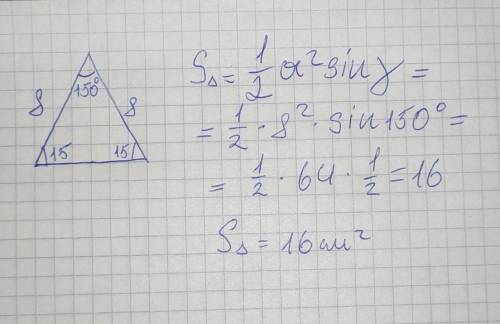 150°
8 8
15 15
S△ = 1/2 a² sin γ =
= 1/2 · 8² · sin 150° =
= 1/2 · 64 · 1/2 = 16
S△ = 16 см²